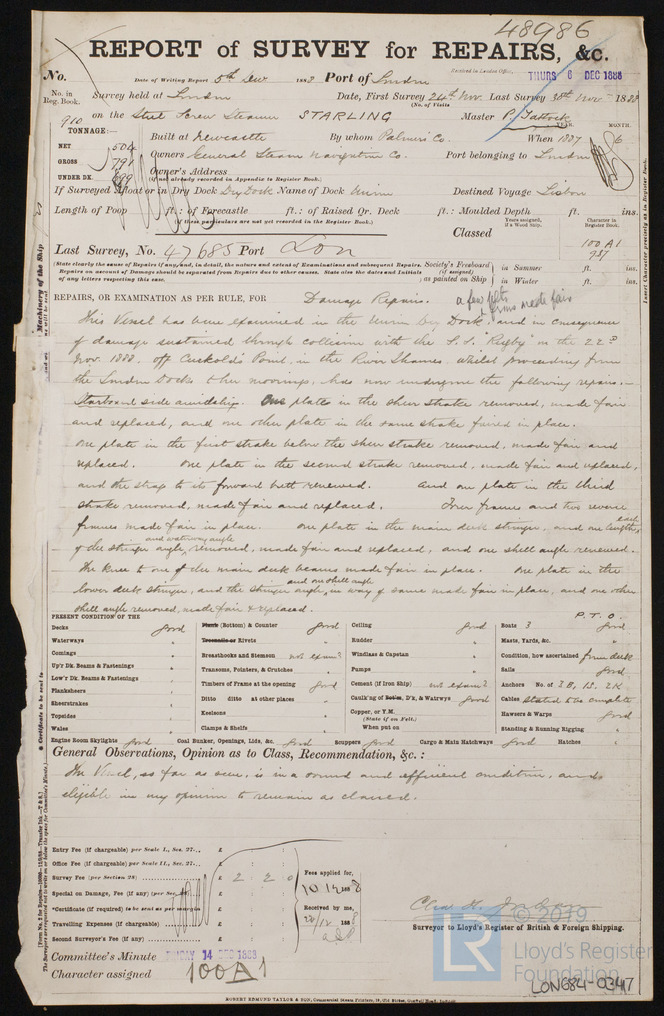 48986
REPORT of SURVEY for REPAIRS, &c.
No. Date of Writing Report 5th Dec 1888 Port of London Received in London Office, THURS 6 DEC 1888
No. in Reg. Book. Survey held at London Date, First Survey 24th Nov. Last Survey 30th Nov 1888
(No. of Visits
910 on the Steel Screw Steamer STARLING Master P.
TONNAGE:— YEAR. MONTH.
NET 504 Built at Newcastle By whom Palmers Co. When 1887 6
GROSS 791 Owners General Steam Navigation Co. Port belonging to London
UNDER DK. Owner's Address
(if not already recorded in Appendix to Register Book.)
If Surveyed Afloat or in Dry Dock Dry Dock Name of Dock Union Destined Voyage Lisbon
Length of Poop ft.: of Forecastle ft.: of Raised Qr. Deck ft.: Moulded Depth ft. ins.
(if these particulars are not yet recorded in the Register Book.)
Years assigned, if a Wood Ship. Character in Register Book.
Classed 100 A1
Last Survey, No. 47685 Port Lon
(State clearly the name of Repairs if any, and, in detail, the nature and extent of Examinations and subsequent Repairs. Repairs on account of Damage should be separated from Repairs due to other causes. State also the dates and Initials of any letters respecting this case.
Society's Freeboard (if assigned) as painted on Ship in Summer ft. ins.
in Winter ft. ins.
REPAIRS, OR EXAMINATION AS PER RULE, FOR Damage Repairs.
This Vessel has been examined in the Union Dry Dock, and in consequence
of damage sustained through collision with the S.S. "Rugby" on the 22nd
Nov. 1888. off Cuckold's Point, in the River Thames, whilst proceeding from
the London Docks to her moorings, has now undergone the following repairs.—
Starboard side amidships. One plate in the sheer strake removed, made fair
and replaced, and one other plate in the same strake faired in place.
One plate in the first strake below the sheer strake removed, made fair and
replaced. One plate in the second strake removed, made fair and replaced,
and the strap to its forward butt renewed. And one plate in the third
strake removed, made fair and replaced. Four frames and two reverse
frames made fair in place. One plate in the main deck stringer, and one length each
and waterway angle
of the stringer angle, removed, made fair and replaced, and one shell angle renewed.
The knee to one of the main deck beams made fair in place. One plate in the
and one shell angle
lower deck stringer, and the stringer angle, in way of same made fair in place, and one other
shell angle removed, made fair & replaced. P.T.O.
PRESENT CONDITION OF THE
Decks good
Waterways "
Comings "
Up'r Dk. Beams & Fastenings "
Low'r Dk. Beams & Fastenings "
Planksheers "
Sheerstrakes "
Topsides "
Wales "
Plank (Bottom) & Counter good
Treenails or Rivets "
Breasthooks and Stemson not exam'd
Transoms, Pointers, & Crutches "
Timbers of Frame at the opening good
Ditto ditto at other places "
Keelsons "
Clamps & Shelfs "
Ceiling good
Rudder "
Windlass & Capstan "
Pumps "
Cement (if Iron Ship) not exam'd
Caulk'ng of Bottm, D'k, & Watrwys good
Copper, or Y.M. (State if on Felt.)
When put on
Boats 3 good
Masts, Yards, &c. "
Condition, how ascertained from deck
Sails good
Anchors No. of 3B, 1S, 2K
Cables stated to be complete
Hawsers & Warps good
Standing & Running Rigging "
Engine Room Skylights good Coal Bunker, Openings, Lids, &c. good Scuppers good Cargo & Main Hatchways good Hatches "
General Observations, Opinion as to Class, Recommendation, &c.:
The Vessel, as far as seen, is in a sound and efficient condition, and is
eligible in my opinion to remain as classed.
Entry Fee (if chargeable) per Scale I., Sec. 27... £
Office Fee (if chargeable) per Scale II., Sec. 27... £
Survey Fee (per Section 28) £ 2 2 0
Special on Damage, Fee (if any) (per Sec. £
*Certificate (if required) to be sent as per margin
Travelling Expenses (if chargeable) £
Second Surveyor's Fee (if any) £
Fees applied for, 10/12 1888
Received by me, 1888
Surveyor to Lloyd's Register of British & Foreign Shipping.
Committee's Minute FRIDAY 14 DEC 1888
Character assigned 100A1
© 2019
LR
Lloyd's Register
Foundation
LON684-0347
ROBERT EDMUND TAYLOR & SON, Commercial Steam Printers, 19, Old Street, Goswell Road, London.